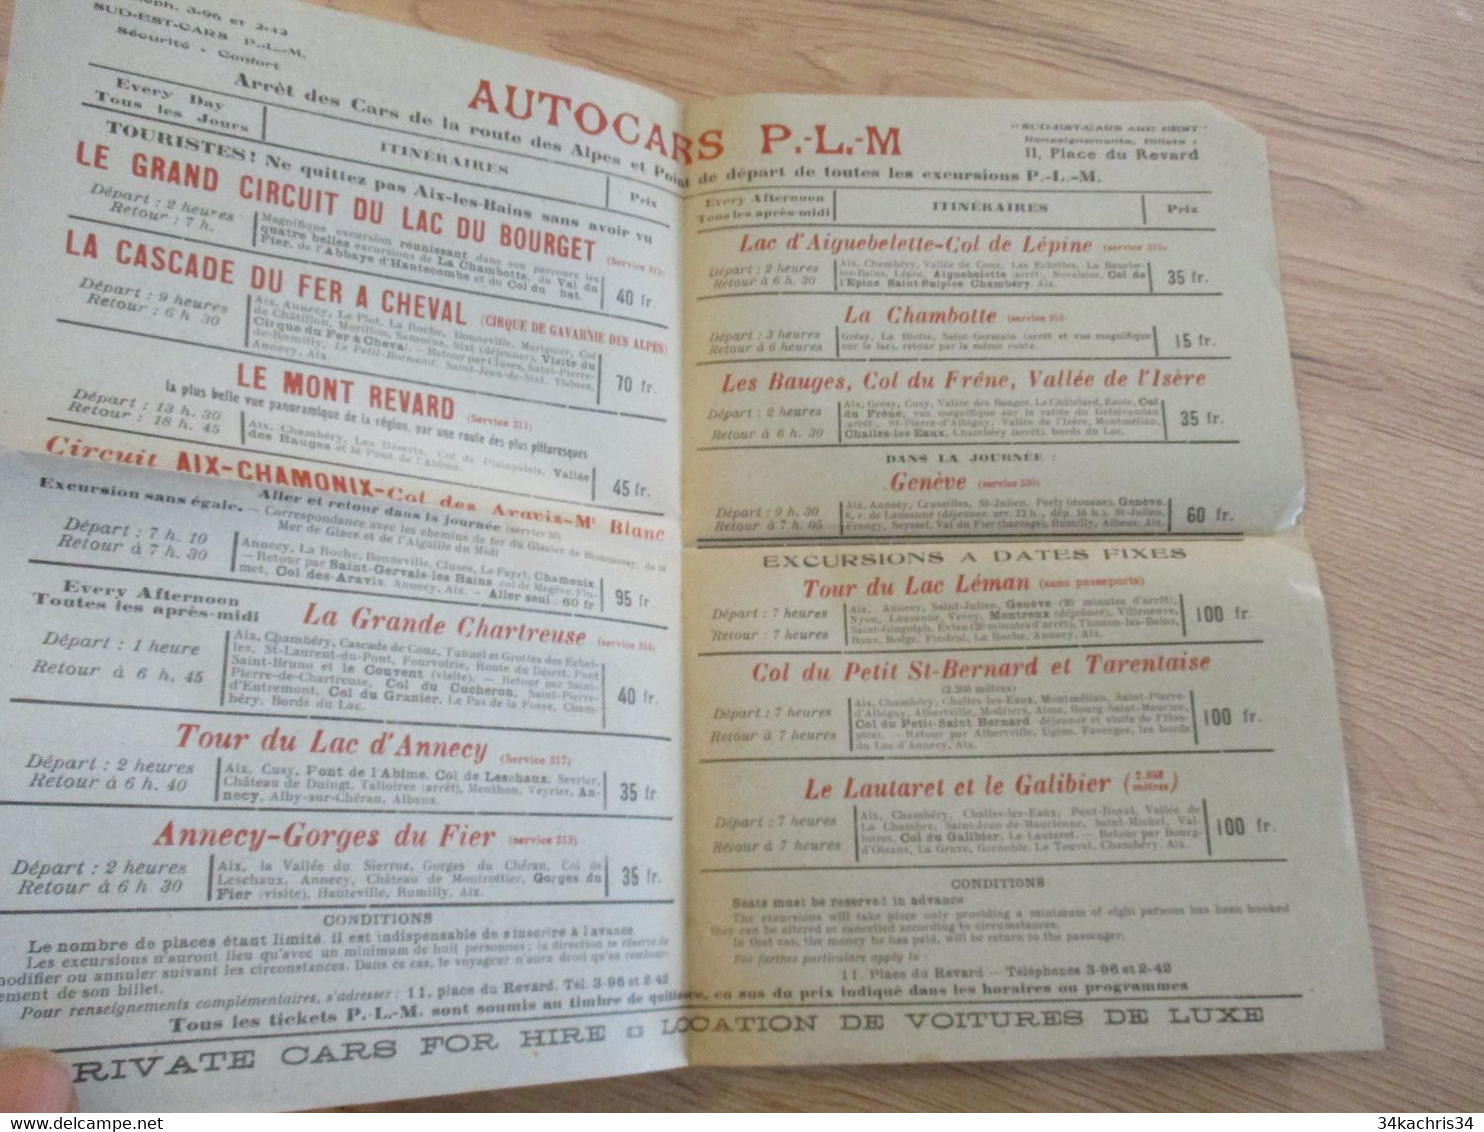 3-96 et 2-42
SUD-EST-CARS P.-L.-M.
Sécurité - Confort
AUTOCARS P.-L.-M
"SUD-EST-CARS ARE BEST"
Renseignements, Billets :
11, Place du Revard
Arrêt des Cars de la route des Alpes et Point de départ de toutes les excursions P.-L.-M.
Every Day
Tous les Jours
ITINÉRAIRES
Prix
TOURISTES! Ne quittez pas Aix-les-Bains sans avoir vu
LE GRAND CIRCUIT DU LAC DU BOURGET (Service 312)
Départ : 2 heures
Retour : 7 h.
Magnifique excursion réunissant dans son parcours les
quatre belles excursions de La Chambotte, du Val du
Fier, de l'Abbaye d'Hautecombe et du Col du hat.
40 fr.
LA CASCADE DU FER A CHEVAL (CIRQUE DE GAVARNIE DES ALPES)
Départ : 9 heures
Retour : 6 h 30
Aix, Annecy, Le Plot, La Roche, Bonneville, Marignier, Col
de Châtillon, Morillon, Samoëns, Sixt (déjeuner), Visite du
Cirque du Fer à Cheval. — Retour par Cluses, Saint-Pierre-
de-Rumilly, Le Petit-Bornand, Saint-Jean-de-Sixt, Thônes,
Annecy, Aix
70 fr.
LE MONT REVARD (Service 311)
la plus belle vue panoramique de la région, par une route des plus pittoresques
Départ : 13 h. 30
Retour : 18 h. 45
Aix, Chambéry, Les Déserts, Col de Plainpalais, Vallée
des Bauges et le Pont de l'Abîme.
45 fr.
Circuit AIX-CHAMONIX-Col des Aravis-Mt Blanc
Excursion sans égale. — Aller et retour dans la journée (service 30)
Correspondance avec les chemins de fer du Glacier de Bionnassay, de la
Mer de Glace et de l'Aiguille du Midi
Départ : 7 h. 10
Retour à 7 h. 30
Annecy, La Roche, Bonneville, Cluses, Le Fayet, Chamonix
— Retour par Saint-Gervais-les Bains, col de Megève, Flu-
met, Col des Aravis, Annecy, Aix. — Aller seul : 60 fr
95 fr
Every Afternoon
Toutes les après-midi
La Grande Chartreuse (service 314)
Départ : 1 heure
Retour à 6 h. 45
Aix, Chambéry, Cascade de Couz, Tunnel et Grottes des Echel-
les, St-Laurent-du-Pont, Fourvoirie, Route du Désert, Pont
Saint-Bruno et le Couvent (visite). — Retour par Saint-
Pierre-de-Chartreuse, Col du Cucheron, Saint-Pierre-
d'Entremont, Col du Granier, Le Pas de la Fosse, Cham-
béry, Bords du Lac.
40 fr.
Tour du Lac d'Annecy (Service 317)
Départ : 2 heures
Retour à 6 h. 40
Aix, Cusy, Pont de l'Abîme, Col de Leschaux, Sevrier,
Château de Duingt, Talloires (arrêt), Menthon, Veyrier, An-
necy, Alby-sur-Chéran, Albens.
35 fr
Annecy-Gorges du Fier (service 313)
Départ : 2 heures
Retour à 6 h. 30
Aix, la Vallée du Sierroz, Gorges du Chéran, Col de
Leschaux, Annecy, Château de Montrottier, Gorges du
Fier (visite), Hauteville, Rumilly, Aix.
35 fr.
CONDITIONS
Le nombre de places étant limité, il est indispensable de s'inscrire à l'avance.
Les excursions n'auront lieu qu'avec un minimum de huit personnes ; la direction se réserve de
modifier ou annuler suivant les circonstances. Dans ce cas, le voyageur n'aura droit qu'au rembour-
ement de son billet.
Pour renseignements complémentaires, s'adresser : 11, place du Revard. Tél. 3-96 et 2-42
Every Afternoon
Tous les après-midi
ITINÉRAIRES
Prix
Lac d'Aiguebelette-Col de Lépine (service 315)
Départ : 2 heures
Retour à 6 h. 30
Aix, Chambéry, Vallée de Couz, Les Echelles, La Bauche-
les-Bains, Lépin, Aiguebelette (arrêt), Novalaise, Col de
l'Epine Saint-Sulpice Chambéry, Aix.
35 fr.
La Chambotte (service 351)
Départ : 3 heures
Retour à 6 heures
Grésy, La Biolle, Saint-Germain (arrêt et vue magnifique
sur le lac), retour par la même route.
15 fr.
Les Bauges, Col du Frêne, Vallée de l'Isère
Départ : 2 heures
Retour à 6 h. 30
Aix, Grésy, Cusy, Vallée des Bauges, Le Châtelard, Ecole, Col
du Frêne, vue magnifique sur la vallée du Grésivaudan
(arrêt), St-Pierre-d'Albigny, Vallée de l'Isère, Montmélian,
Challes-les Eaux, Chambéry (arrêt), bords du Lac.
35 fr.
DANS LA JOURNÉE :
Genève (service 320)
Départ : 9 h. 30
Retour à 7 h. 05
Aix, Annecy, Cruseilles, St-Julien, Perly (douane), Genève
6, r. de Lausanne (déjeuner, arr. 12 h., dép. 16 h.), St-Julien,
Frangy, Seyssel, Val du Fier (barrage), Rumilly, Albens, Aix.
60 fr.
EXCURSIONS A DATES FIXES
Tour du Lac Léman (sans passeports)
Départ : 7 heures
Retour : 7 heures
Aix, Annecy, Saint-Julien, Genève (20 minutes d'arrêt),
Nyon, Lausanne, Vevey, Montreux (déjeûner), Villeneuve,
Saint-Gingolph, Evian (20 minutes d'arrêt), Thonon-les-Bains,
Bons, Boëge, Findrol, La Roche, Annecy, Aix.
100 fr.
Col du Petit St-Bernard et Tarentaise
(2.200 mètres)
Départ : 7 heures
Retour à 7 heures
Aix, Chambéry, Challes-les-Eaux, Montmélian, Saint-Pierre-
d'Albigny, Albertville, Moûtiers, Aime, Bourg Saint-Maurice,
Col du Petit-Saint Bernard (déjeuner et visite de l'Hos-
pice). — Retour par Albertville, Ugine, Faverges, les bords
du Lac d'Annecy, Aix.
100 fr.
Le Lautaret et le Galibier (2.658 mètres)
Départ : 7 heures
Retour à 7 heures
Aix, Chambéry, Challes-les-Eaux, Pont-Royal, Vallée de
La Chambre, Saint-Jean-de-Maurienne, Saint-Michel, Val-
loires, Col du Galibier, Le Lautaret. — Retour par Bourg-
d'Oisans, La Grave, Grenoble, Le Touvet, Chambéry, Aix.
100 fr.
CONDITIONS
Seats must be reserved in advance
The excursions will take place only providing a minimum of eight persons has been booked
they can be altered or cancelled according to circumstances.
In that case, the money he has paid, will be return to the passenger.
For farther particulars apply to :
11, Place du Revard — Téléphones 3-96 et 2-42
Tous les tickets P.-L.-M. sont soumis au timbre de quittance, en sus du prix indiqué dans les horaires ou programmes
PRIVATE CARS FOR HIRE □ LOCATION DE VOITURES DE LUXE
34kachris34